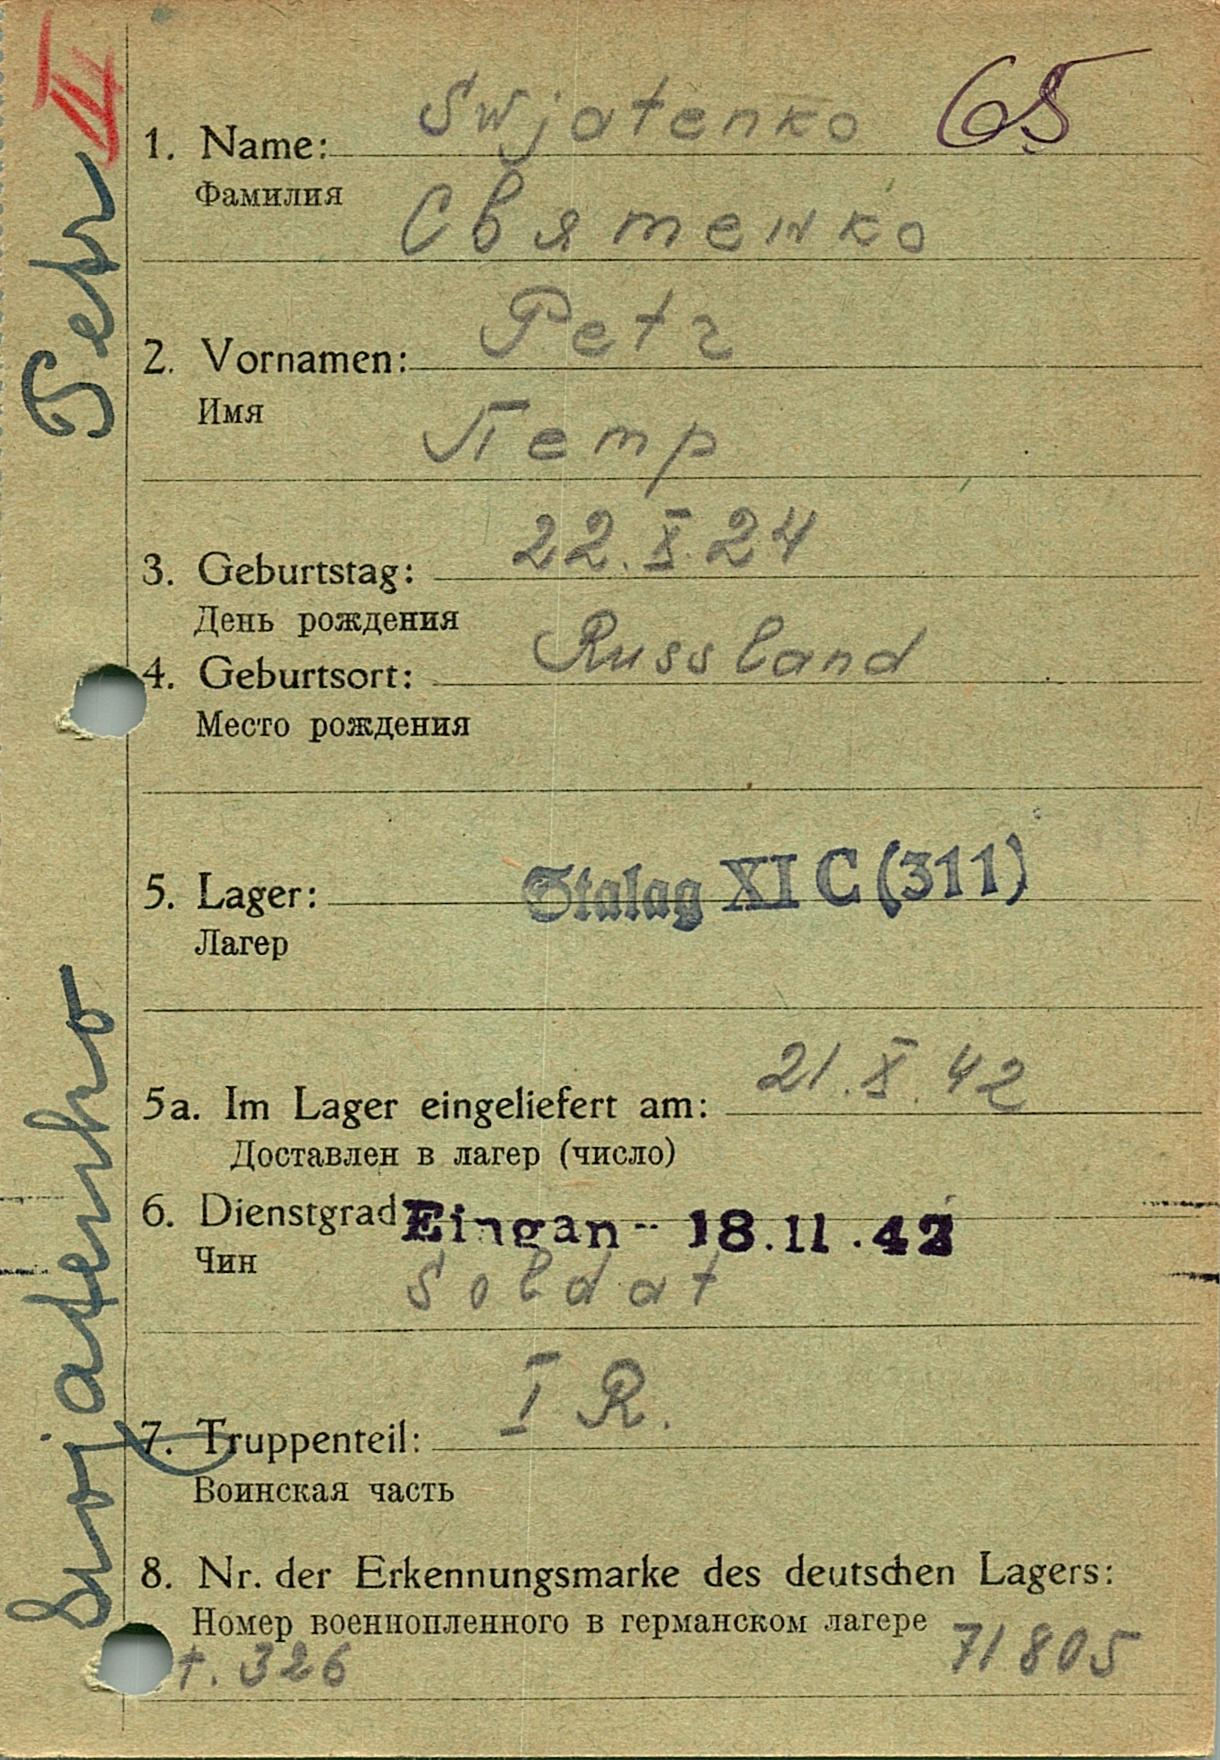 Swjatenko 65
1. Name:
Фамилия
Святенко
Petr
2. Vornamen:
Имя
Петр
22.X.24
3. Geburtstag:
День рождения
Russland
4. Geburtsort:
Место рождения
5. Lager: Stalag XI C (311)
Лагер
21.X.42
5a. Im Lager eingeliefert am:
Доставлен в лагер (число)
6. Dienstgrad Eingan-- 18.11.42
Чин
Soldat
I R.
7. Truppenteil:
Воинская часть
8. Nr. der Erkennungsmarke des deutschen Lagers:
Номер военнопленного в германском лагере
t. 326 71805
Swjatenko Petr